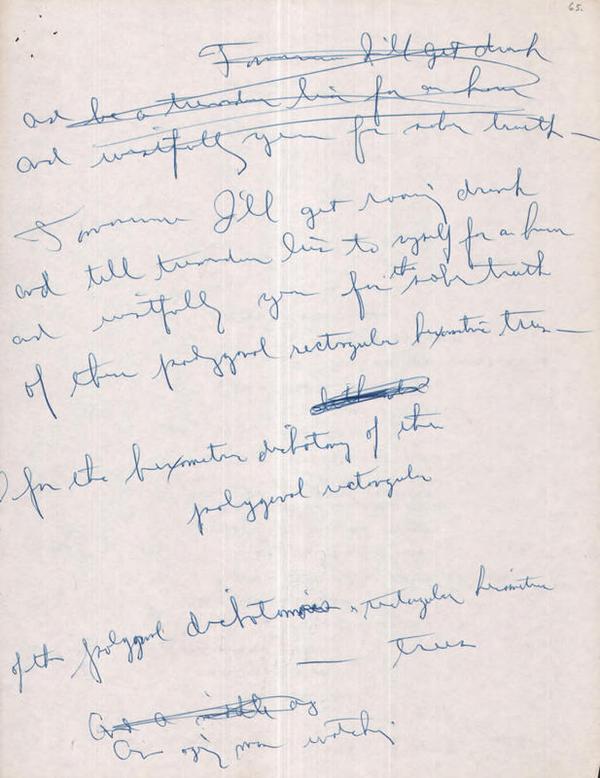 65.
Tomorrow I'll get drunk
and be a tremendous liar for an hour
and wistfully yearn for sober truth —
Tomorrow I'll get roaring drunk
and tell tremendous lies to myself for an hour
and wistfully yearn for the sober truth
of these polygonal rectangular hexametric trees —
for the hexametric dichotomy of these
polygonal rectangular
of the polygonal dichotomies rectangular hexametric
— trees
An aging man watching